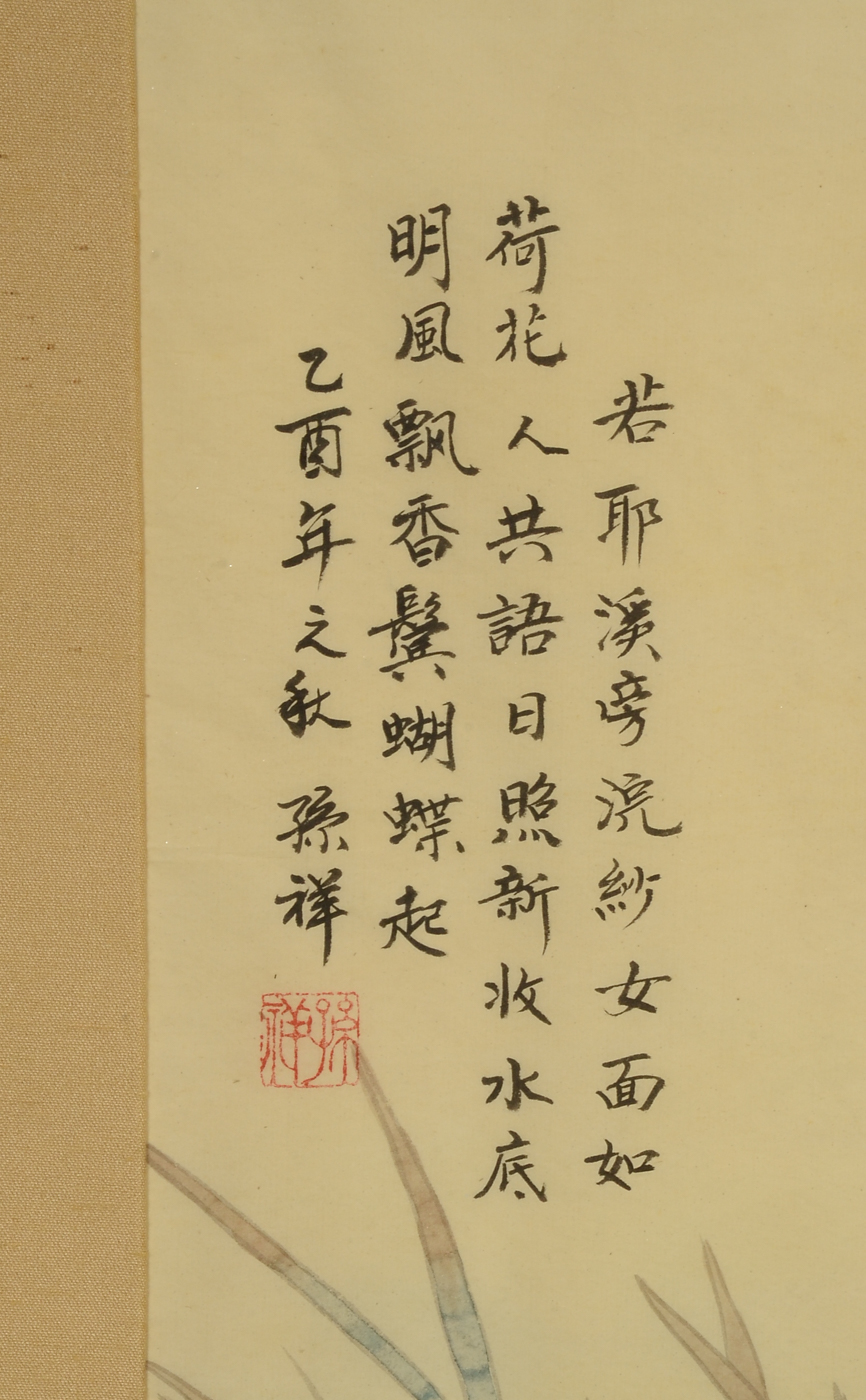 若耶溪旁浣紗女面如
荷花人共語日照新妝水底
明風飄香鬢蝴蝶起
乙酉年之秋 孫祥
孫祥